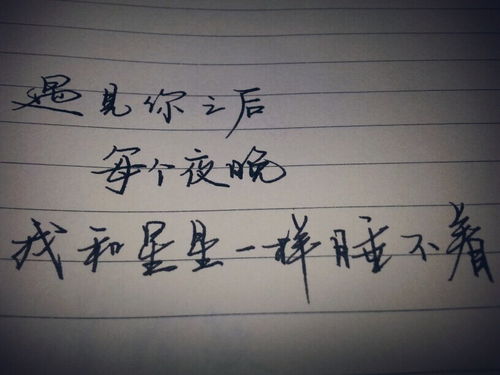 遇见你之后
每个夜晚
我和星星一样睡不着